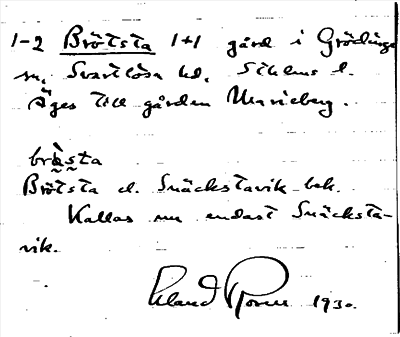 1-2 Brötsta 1+1 gård i Grödinge
sn, Svartlösa hd, Sthlms l.
Äges till gården Marieberg.
brø̀sta
Brötsta el. Snäckstavik bek.
Kallas nu endast Snäcksta-
vik.
Erland 1930.